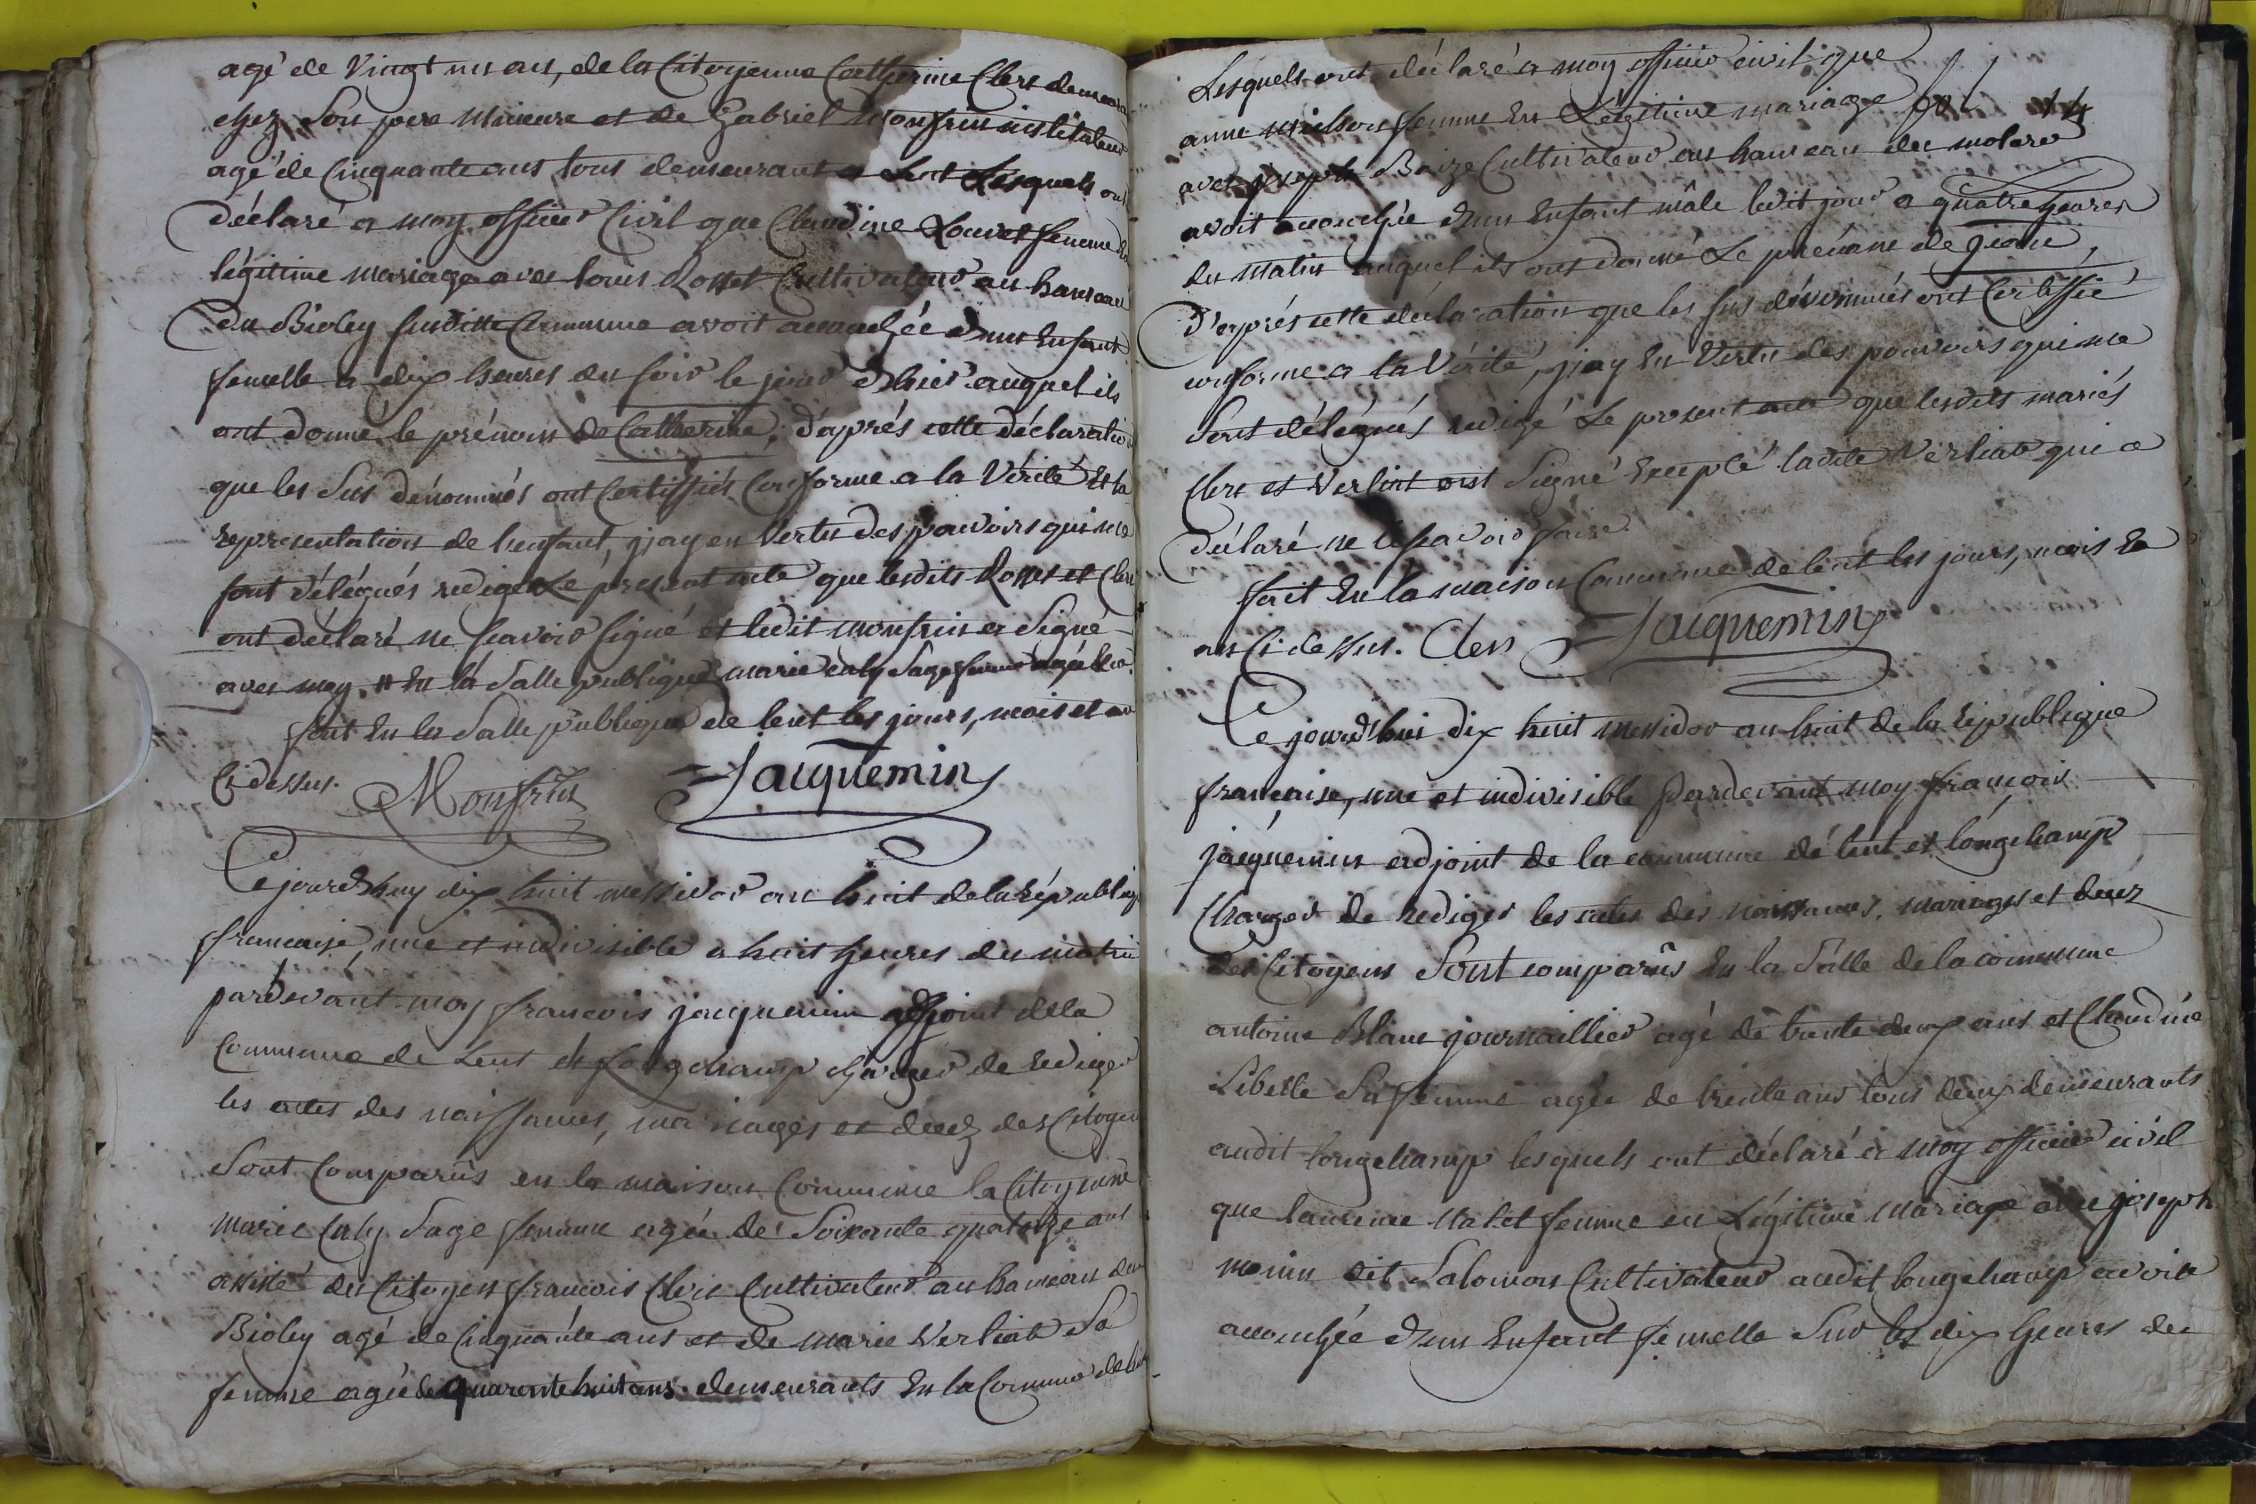 agé de Vingt un ans, de la Citoyenne Catherine Clers demeura
chez Son pere Mineure et de Gabriel Monfrin institateur
agé de Cinquante ans tous demeurant a Lent Lesquels ont
déclaré a moy officier Civil que Claudine Louvet femme En
légitime mariage avec louis Rosset Cultivateur au hameau
du Bioley susditte Commune avoit accouchée d'un Enfant
femelle a dix heures du soir le jour d'hier auquel ils
ont donné le prénom de Catherine, d'aprés cette déclaration
que les Sus dénommés ont Certiffiés Conforme a la Vérité Et la
representation de l'enfant, j'iay en Vertu des pouvoirs qui me
sont délégués redigé Le présent acte que lesdits Rosset et Clers
ont déclaré ne scavoir signé et ledit monfrin a Signé
avec moy. # En la Salle publique marie caly Sage femme
fait En la Salle publique de lent les jours, mois et an
Ci dessus. Monfrin Jacquemin
Ce jourd'huy dix huit messidor an huit de la Républiq
francaise, une et indivisible a huit heures du matin
pardevant moy francois jacquemin adjoint de la
Commune de Lent et Longchamp chargé de rediger
les actes des naissances, mariages et decez des Citoyens
Sont Comparûs en la maison Commune la Citoyenne
Marie Caly Sage femme agée de Soixante quatorze ans
assisté du Citoyen francois Clers Cultivateur au hameau du
Bioley agé de Cinquante ans et de marie Verliat Sa
femme agée de quarente huit ans demeurants En la Commune de lent
Lesquels ont déclaré a moy officier civil que
anne michon femme En Légitime mariage fol 14
avec joseph Baize Cultivateur au hameau du molard
avoit accouchée d'un Enfant mâle ledit jour a quatre heures
du matin auquel ils ont donné Le prénom de
D'aprés cette déclaration que les sus dénommés ont Certiffié
conforme a la Vérité, j'iay En Vertu des pouvoirs qui me
Sont délégués redigé Le present acte que lesdits mariés
Clers et Verliat ont Signé Excepté ladite Verliat qui a
déclaré ne le scavoir faire
fait En la maison Commune de lent les jours, mois Et
an Ci dessus. Clers Jacquemin
Ce jourd'hui dix huit messidor an huit de la République
française, une et indivisible Pardevant moy françois
jacquemin adjoint de la commune de lent et longchamp
Chargé de rediger les actes des naissances, mariages et decez
des Citoyens Sont comparûs En la Salle de la commune
antoine Blanc journaillier agé de trente deux ans et Claudine
Libelle Sa femme agée de trente ans tous deux demeurants
audit longchamp lesquels ont déclaré a moy officier civil
que laurence Malet femme en Légitime mariage avec joseph
monin dit Salomon Cultivateur audit longchamp avoit
accouchée d'un Enfant femelle Sur les dix heures du